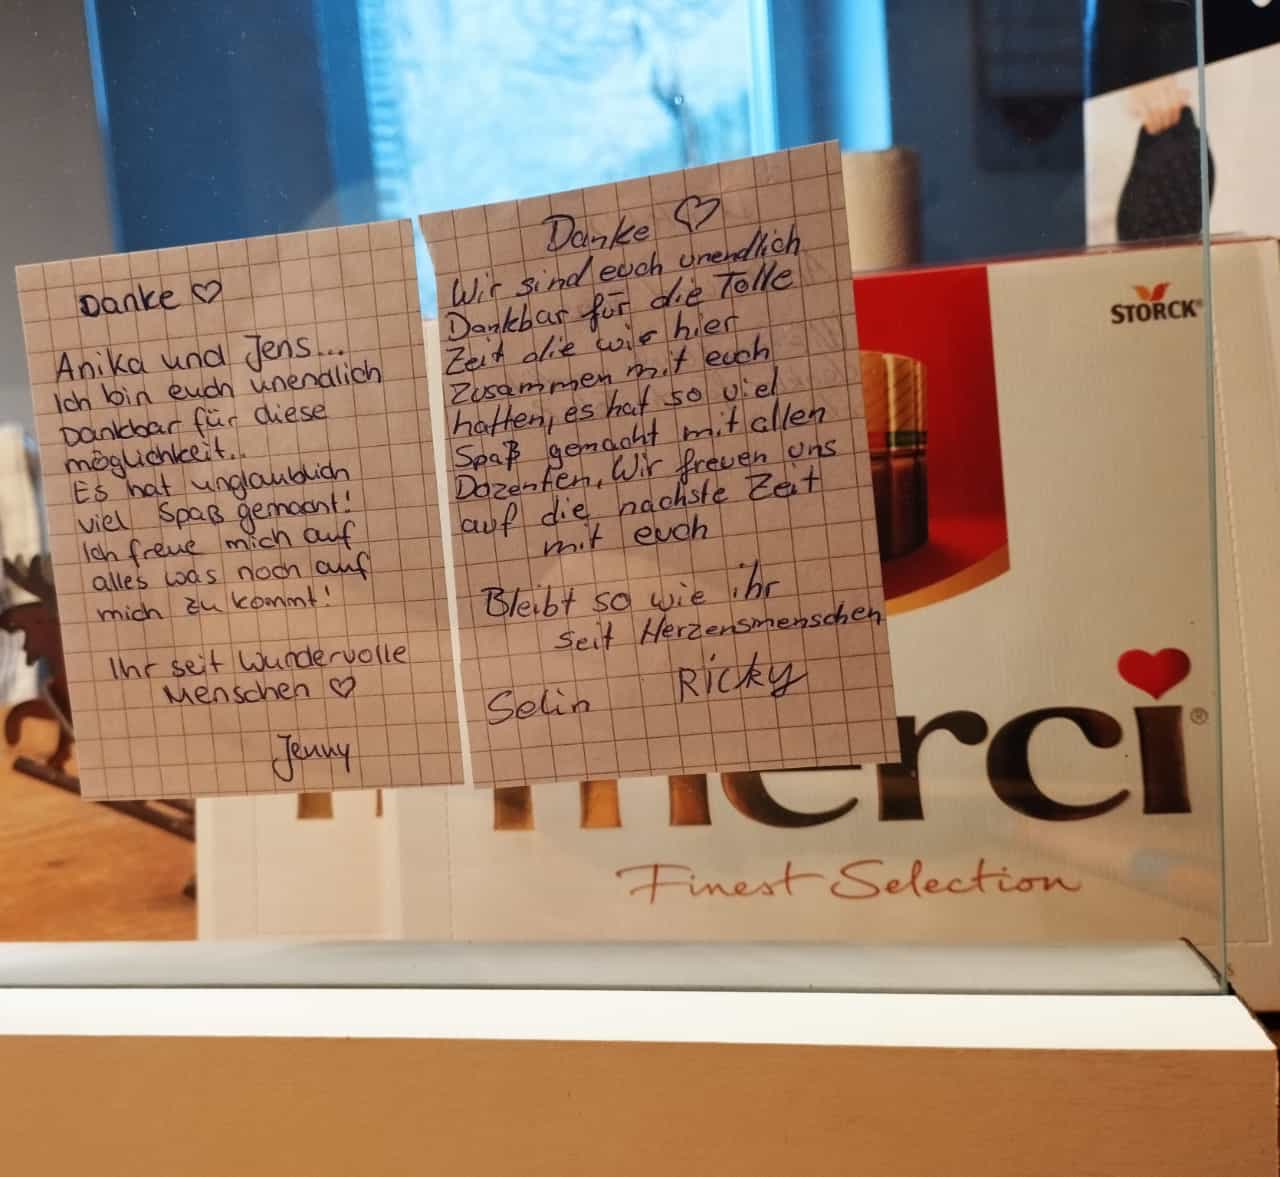 Danke ♡
Anika und Jens...
Ich bin euch unendlich
Dankbar für diese
möglichkeit..
Es hat unglaublich
viel Spaß gemacht!
Ich freue mich auf
alles was noch auf
mich zu kommt!
Ihr seit wundervolle
Menschen ♡
Jenny
Danke ♡
Wir sind euch unendlich
Dankbar für die Tolle
Zeit die wir hier
Zusammen mit euch
hatten, es hat so viel
Spaß gemacht mit allen
Dozenten, Wir freuen uns
auf die nächste Zeit
mit euch
Bleibt so wie ihr
seit Herzensmenschen
Selin Ricky
STORCK®
merci®
Finest Selection